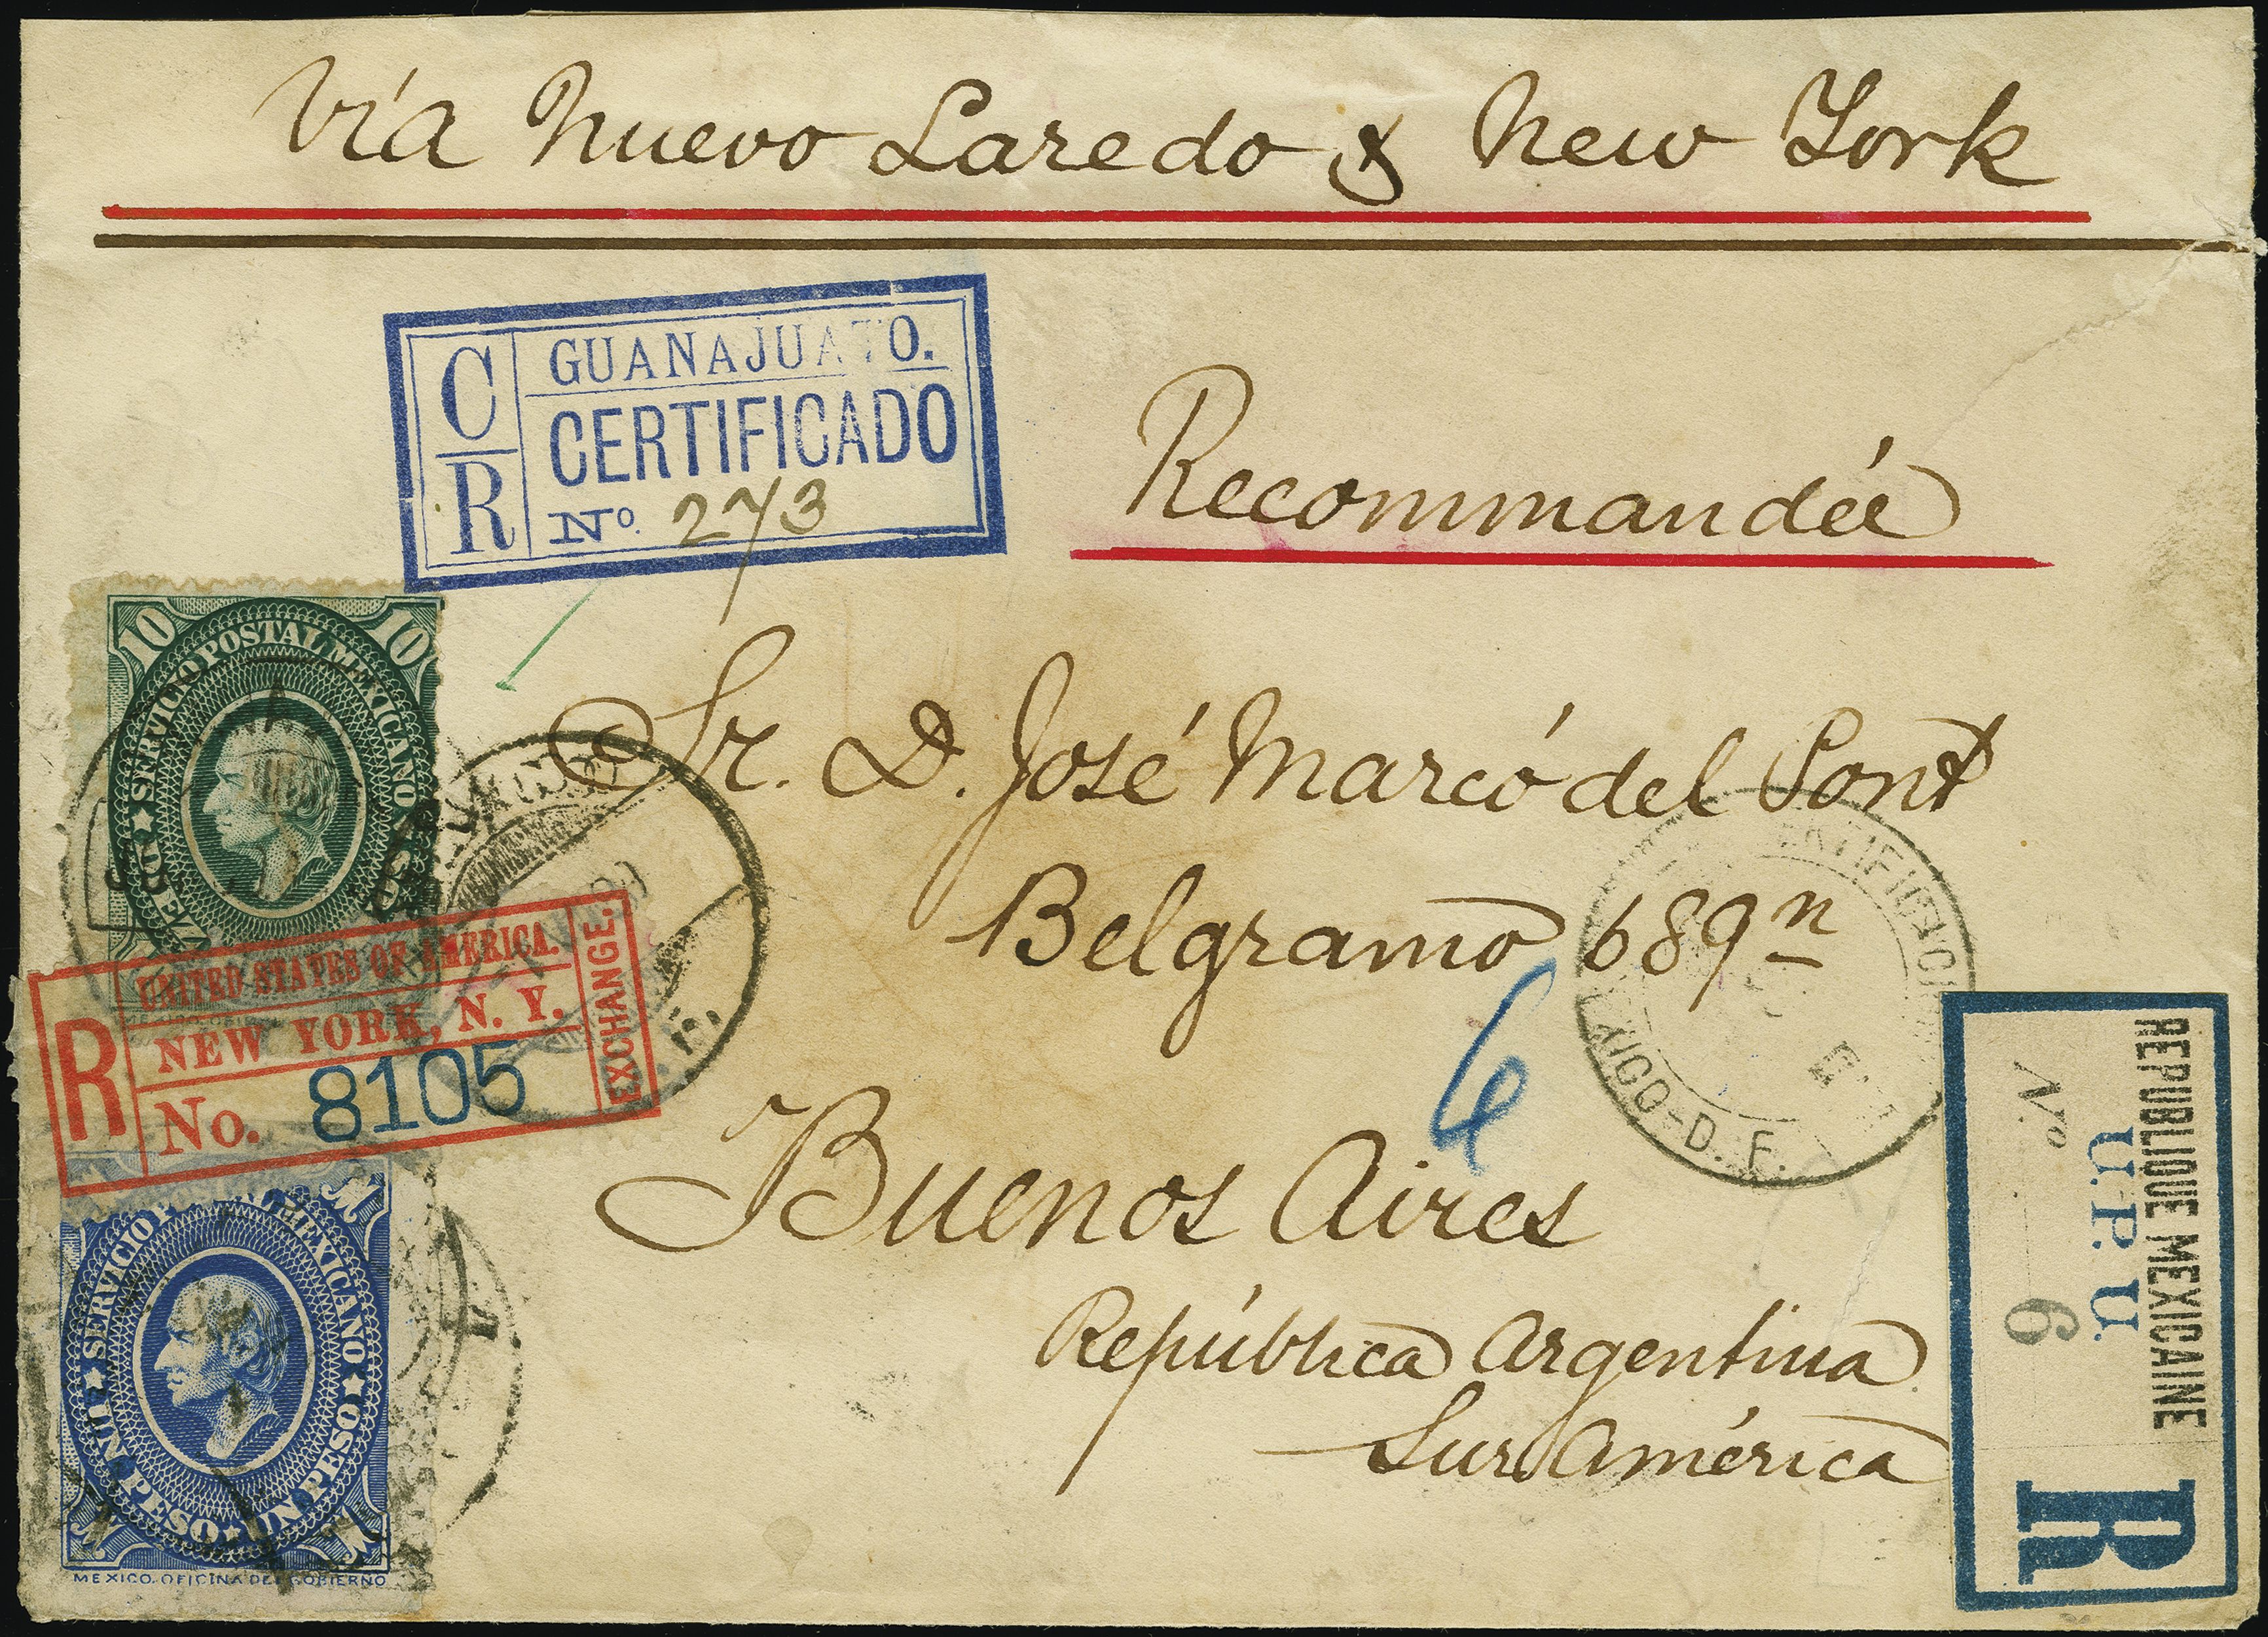 Vía Nuevo Laredo & New York
C
R
GUANAJUATO.
CERTIFICADO
No. 273
Recommandée
10 10
SERVICIO POSTAL MEXICANO
Sr. D. José Marcó del Pont
Belgrano 689 n
6
Buenos Aires
República Argentina
Sur América
R
UNITED STATES OF AMERICA.
NEW YORK, N. Y.
No. 8105
EXCHANGE.
SERVICIO POSTAL MEXICANO
UN PESO UN PESO
MEXICO. OFICINA DEL GOBIERNO
MEXICO-D. F.
REPUBLIQUE MEXICAINE
U. P. U.
No. 6
R